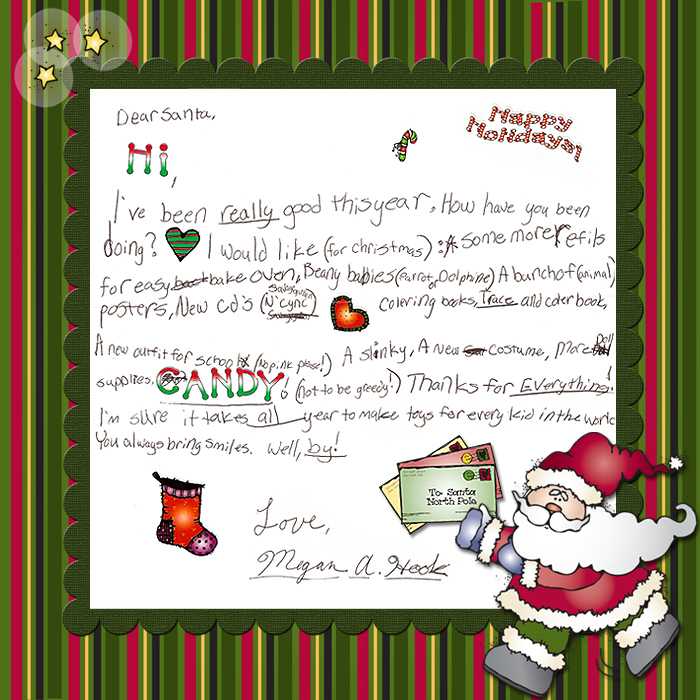 Dear Santa,
Happy
Holidays!
Hi,
I've been really good this year. How have you been
doing? I would like (for christmas) : A some more refils
for easy bake oven, Beany babies (Parrot or Dolphine) A bunch of (animal)
posters, New cd's (N'cync) colering books, Trace and coler book,
A new outfit for school (No pink please!) A slinky, A new costume, More Doll
supplies, CANDY! (not to be greedy!) Thanks for Everything!
I'm sure it takes all year to make toys for every kid in the world
You always bring smiles. Well, by!
To: Santa
North Pole
Love,
Megan A. Heck